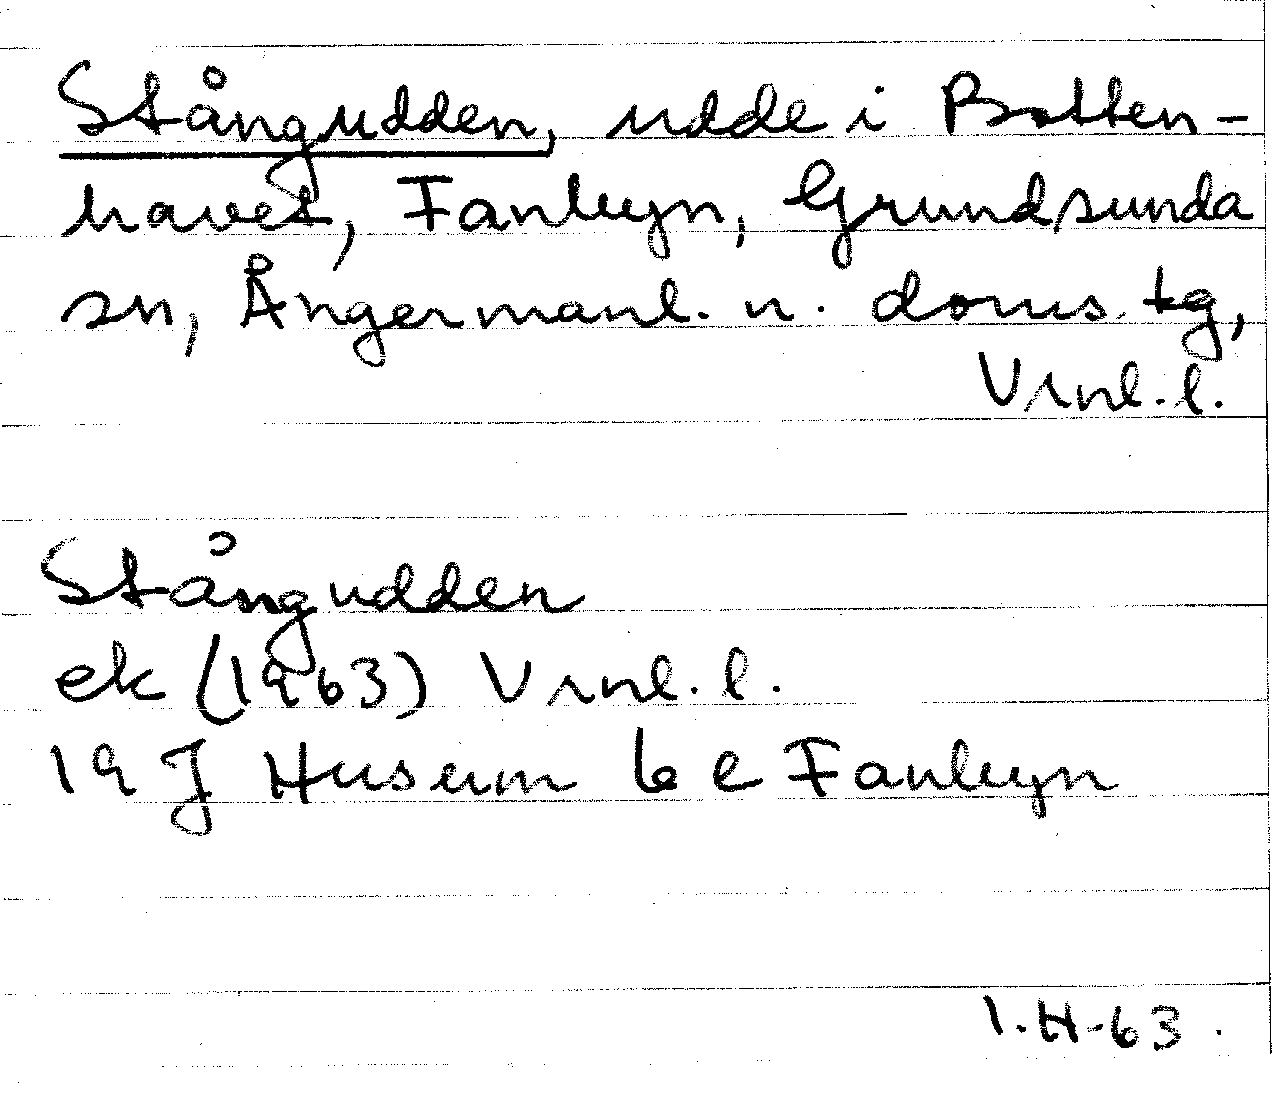 Stångudden, udde i Botten-
havet, Fanbyn, Grundsunda
sn, Ångermanl. n. doms. tg,
Vrnl. l.
Stångudden
ek (1963) Vrnl. l.
19 J Husum 6 e Fanbyn
I.H-63.